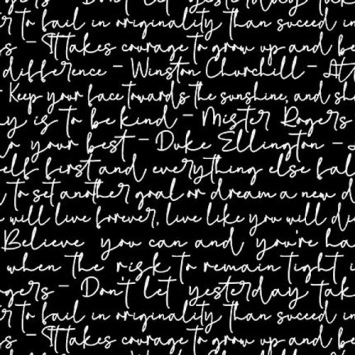 Rogers - Don't let yesterday take
to fail in originality than succeed in
- It takes courage to grow up and be
difference - Winston Churchill - At
Keep your face towards the sunshine, and sh
is to be kind - Mister Rogers
your best - Duke Ellington -
first and everything else fal
to set another goal or dream a new d
will live forever, live like you will di
Believe you can and you're ha
when the risk to remain tight i
ogers - Don't let yesterday tak
to fail in originality than succeed in
- It takes courage to grow up and be
difference - Winston Churchill - At